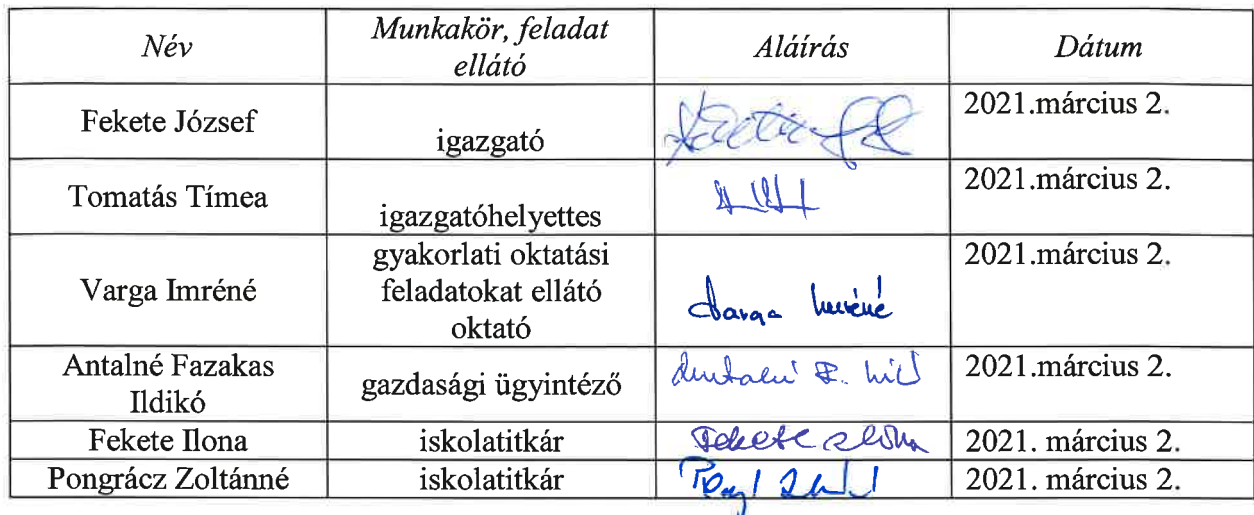 Név Munkakör, feladat ellátó Aláírás Dátum
Fekete József igazgató 2021.március 2.
Tomatás Tímea igazgatóhelyettes 2021.március 2.
Varga Imréné gyakorlati oktatási feladatokat ellátó oktató Varga Imréné 2021.március 2.
Antalné Fazakas Ildikó gazdasági ügyintéző Antalné F. 2021.március 2.
Fekete Ilona iskolatitkár Fekete Ilona 2021. március 2.
Pongrácz Zoltánné iskolatitkár 2021. március 2.